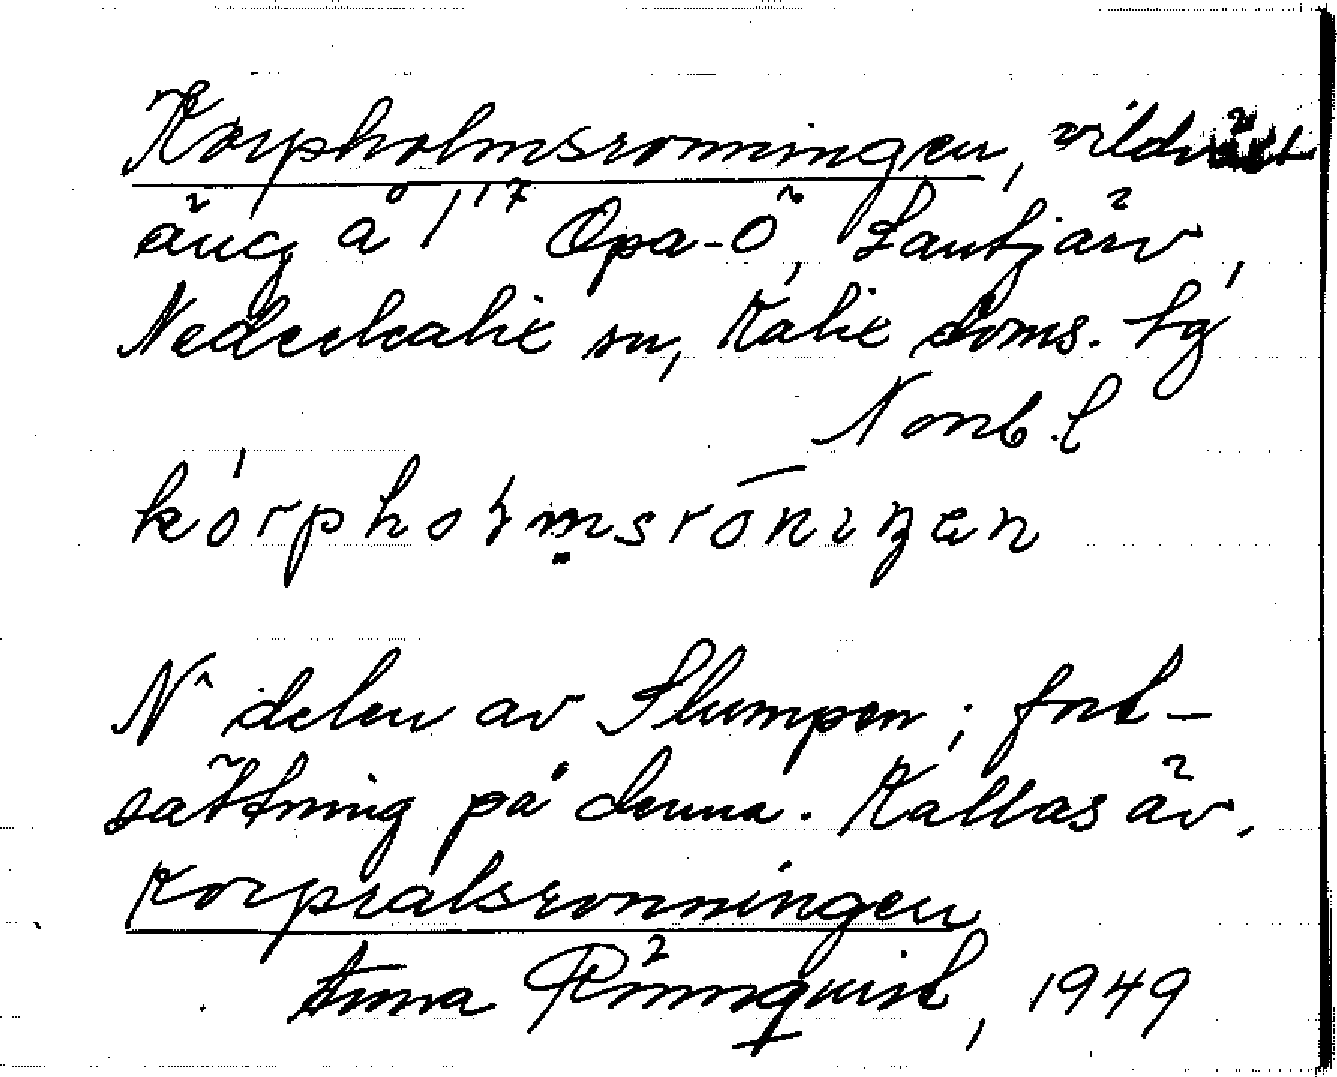 Korpholmsronningen, vildväxt
äng å 1/17 Opa-Ö, Santjärv,
Nederkalix sn, Kalix doms. tg
Norrb. l
kórpholmsrōniŋen
N delen av Slumpen; fort-
sättning på denna. Kallas äv.
Korpralsronningen
Anna Rönnqvist, 1949